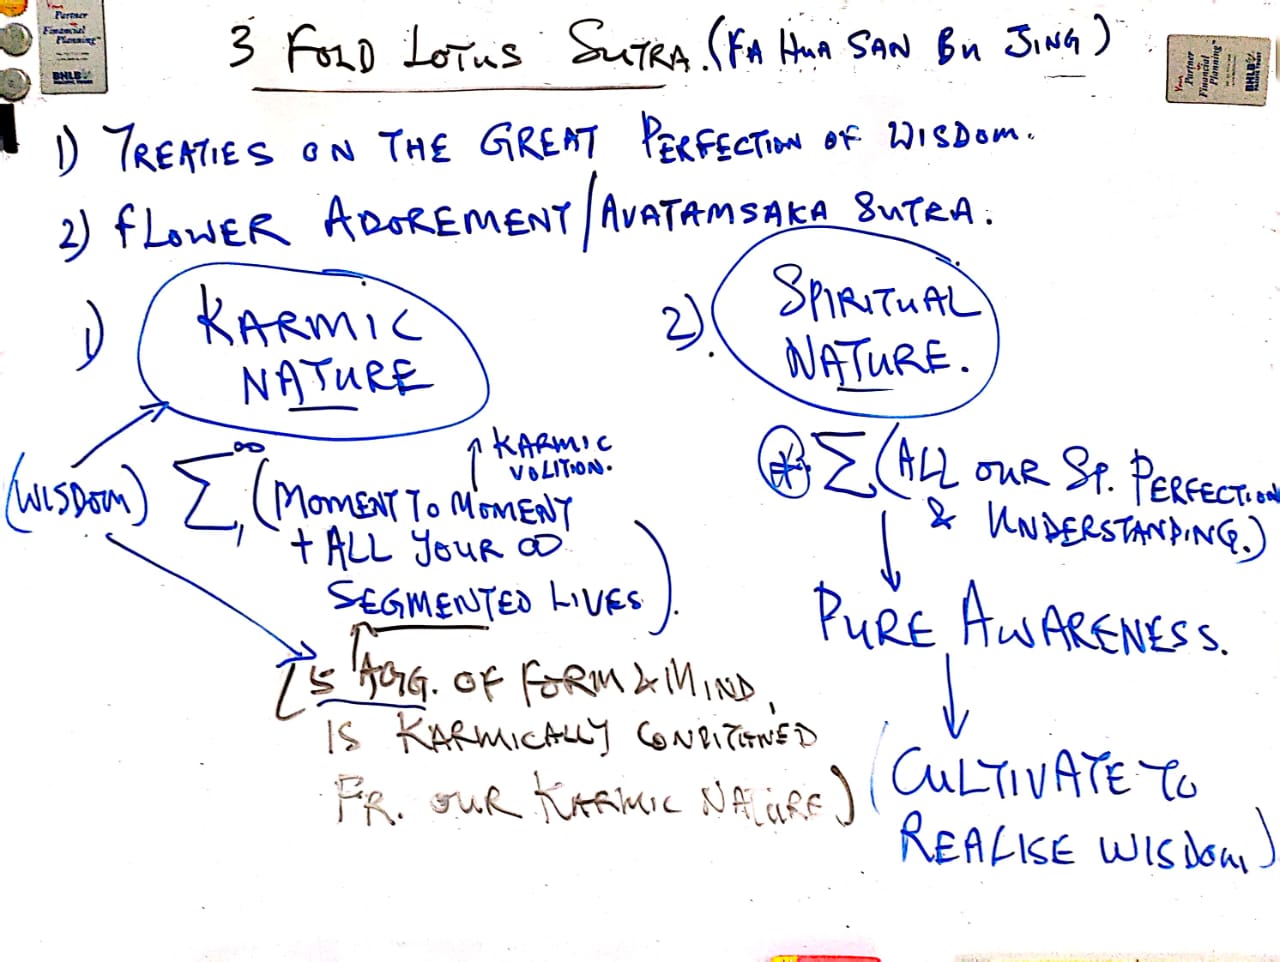 Your Partner
Financial
Planning
BHLB
3 FOLD LOTUS SUTRA. (FA HUA SAN BU JING)
Your Partner
Financial
Planning
BHLB
1) TREATIES ON THE GREAT PERFECTION OF WISDOM.
2) FLOWER ADOREMENT/AVATAMSAKA SUTRA.
1) KARMIC
NATURE
2). SPIRITUAL
NATURE.
(WISDOM)
∞
Σ
1
KARMIC
VOLITION.
(MOMENT TO MOMENT
+ ALL YOUR ∞
SEGMENTED LIVES).
[5 AGG. OF FORM & MIND,
IS KARMICALLY CONDITIONED
FR. OUR KARMIC NATURE)
* Σ (ALL OUR SP. PERFECTION
& UNDERSTANDING.)
PURE AWARENESS.
(CULTIVATE TO
REALISE WISDOM)